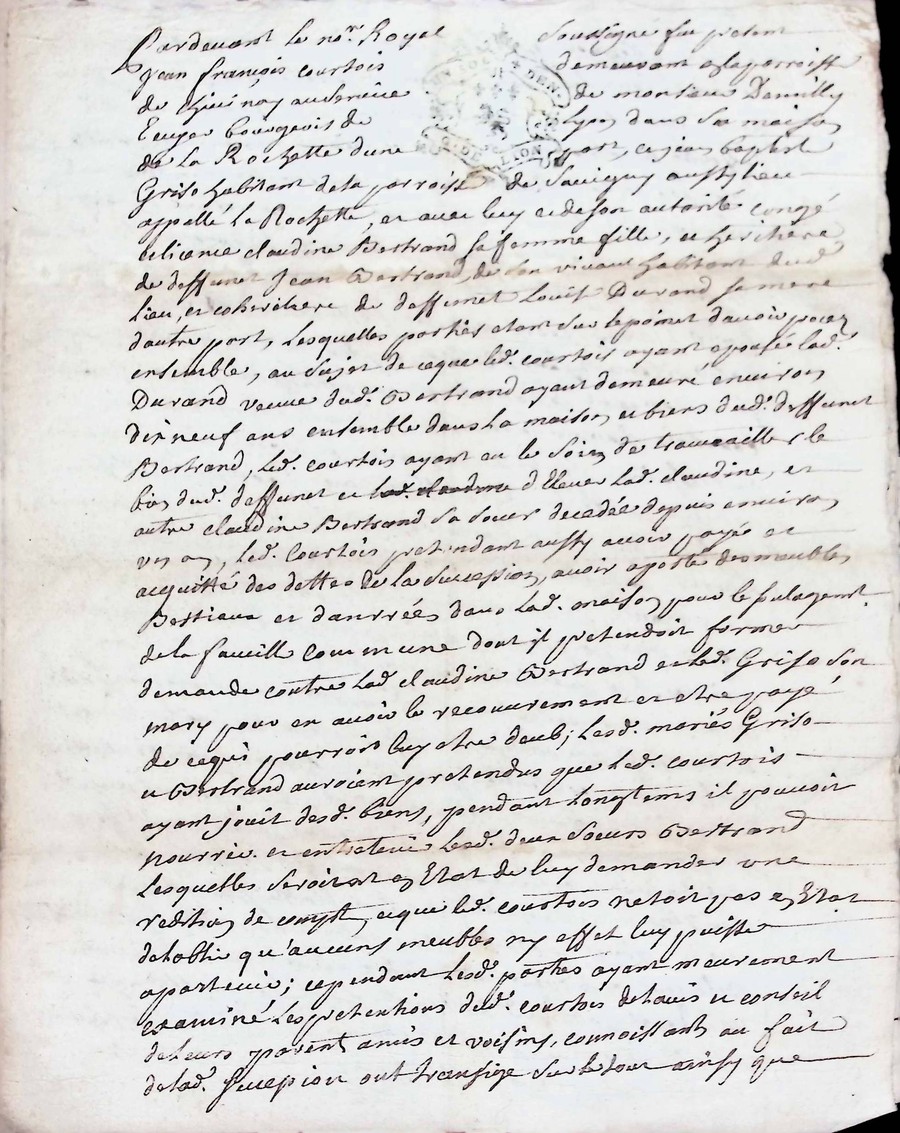 Pardevant le no.re Royal soussigné fut present
Jean françois courtois demeurant en la parroisse
de au service de monsieur
Ecuyer bourgeois de Lyon dans sa maison
de La Rochette d'une part, et jean baptiste
Griso habitant de la parroisse de Savigny aussy lieu
appellé La Rochette, et avec luy et de son autorité congé
et licence claudine Bertrand sa femme fille, et heritiere
de deffunct Jean Bertrand, de son vivant habitant dud.
Lieu, et coheritiere de deffunct Louise Durand sa mere
d'autre part, Lesquelles parties etant sur le point d'avoir procez
ensemble, au sujet de ce que led. courtois ayant epousé lad.
Durand veuve dud. Bertrand ayant demeuré environ
dix neuf ans ensemble dans la maison et biens dud. deffunct
Bertrand, Led. courtois ayant eu le soin de travailler le
bien dud. deffunct et d'Elever lad. claudine, et
autre claudine Bertrand sa soeur decedée depuis environ
un an, Led. Courtois pretendant aussy avoir payé et
acquitté des dettes de la sucession, avoir aporté des meubles
Bestiaux et danrrées dans Lad. maison pour le
de la famille commune dont il pretendoit former
demande contre Lad. claudine Bertrand et led. Griso son
mary pour en avoir le recouvrement et etre payé
de ce qui pourroit luy etre deub; Lesd. mariés Griso
et Bertrand auroient pretendus que Led. courtois
ayant jouit desd. biens, pendant Longtems il pouvoit
nourrir et entretenir Lesd. deux soeurs Bertrand
Lesquelles seroient en Etat de luy demander une
redition de compte, et que led. courtois netoit pas en Etat
detablir qu'aucuns meubles ny effet luy puisse
apartenir; cependant Lesd. parties ayant meurement
examiné Les pretentions dud. courtois de l'avis et conseil
de leurs parent amis et voisins, connoissants au fait
de lad. sucession ont transigé sur le tout ainsy que